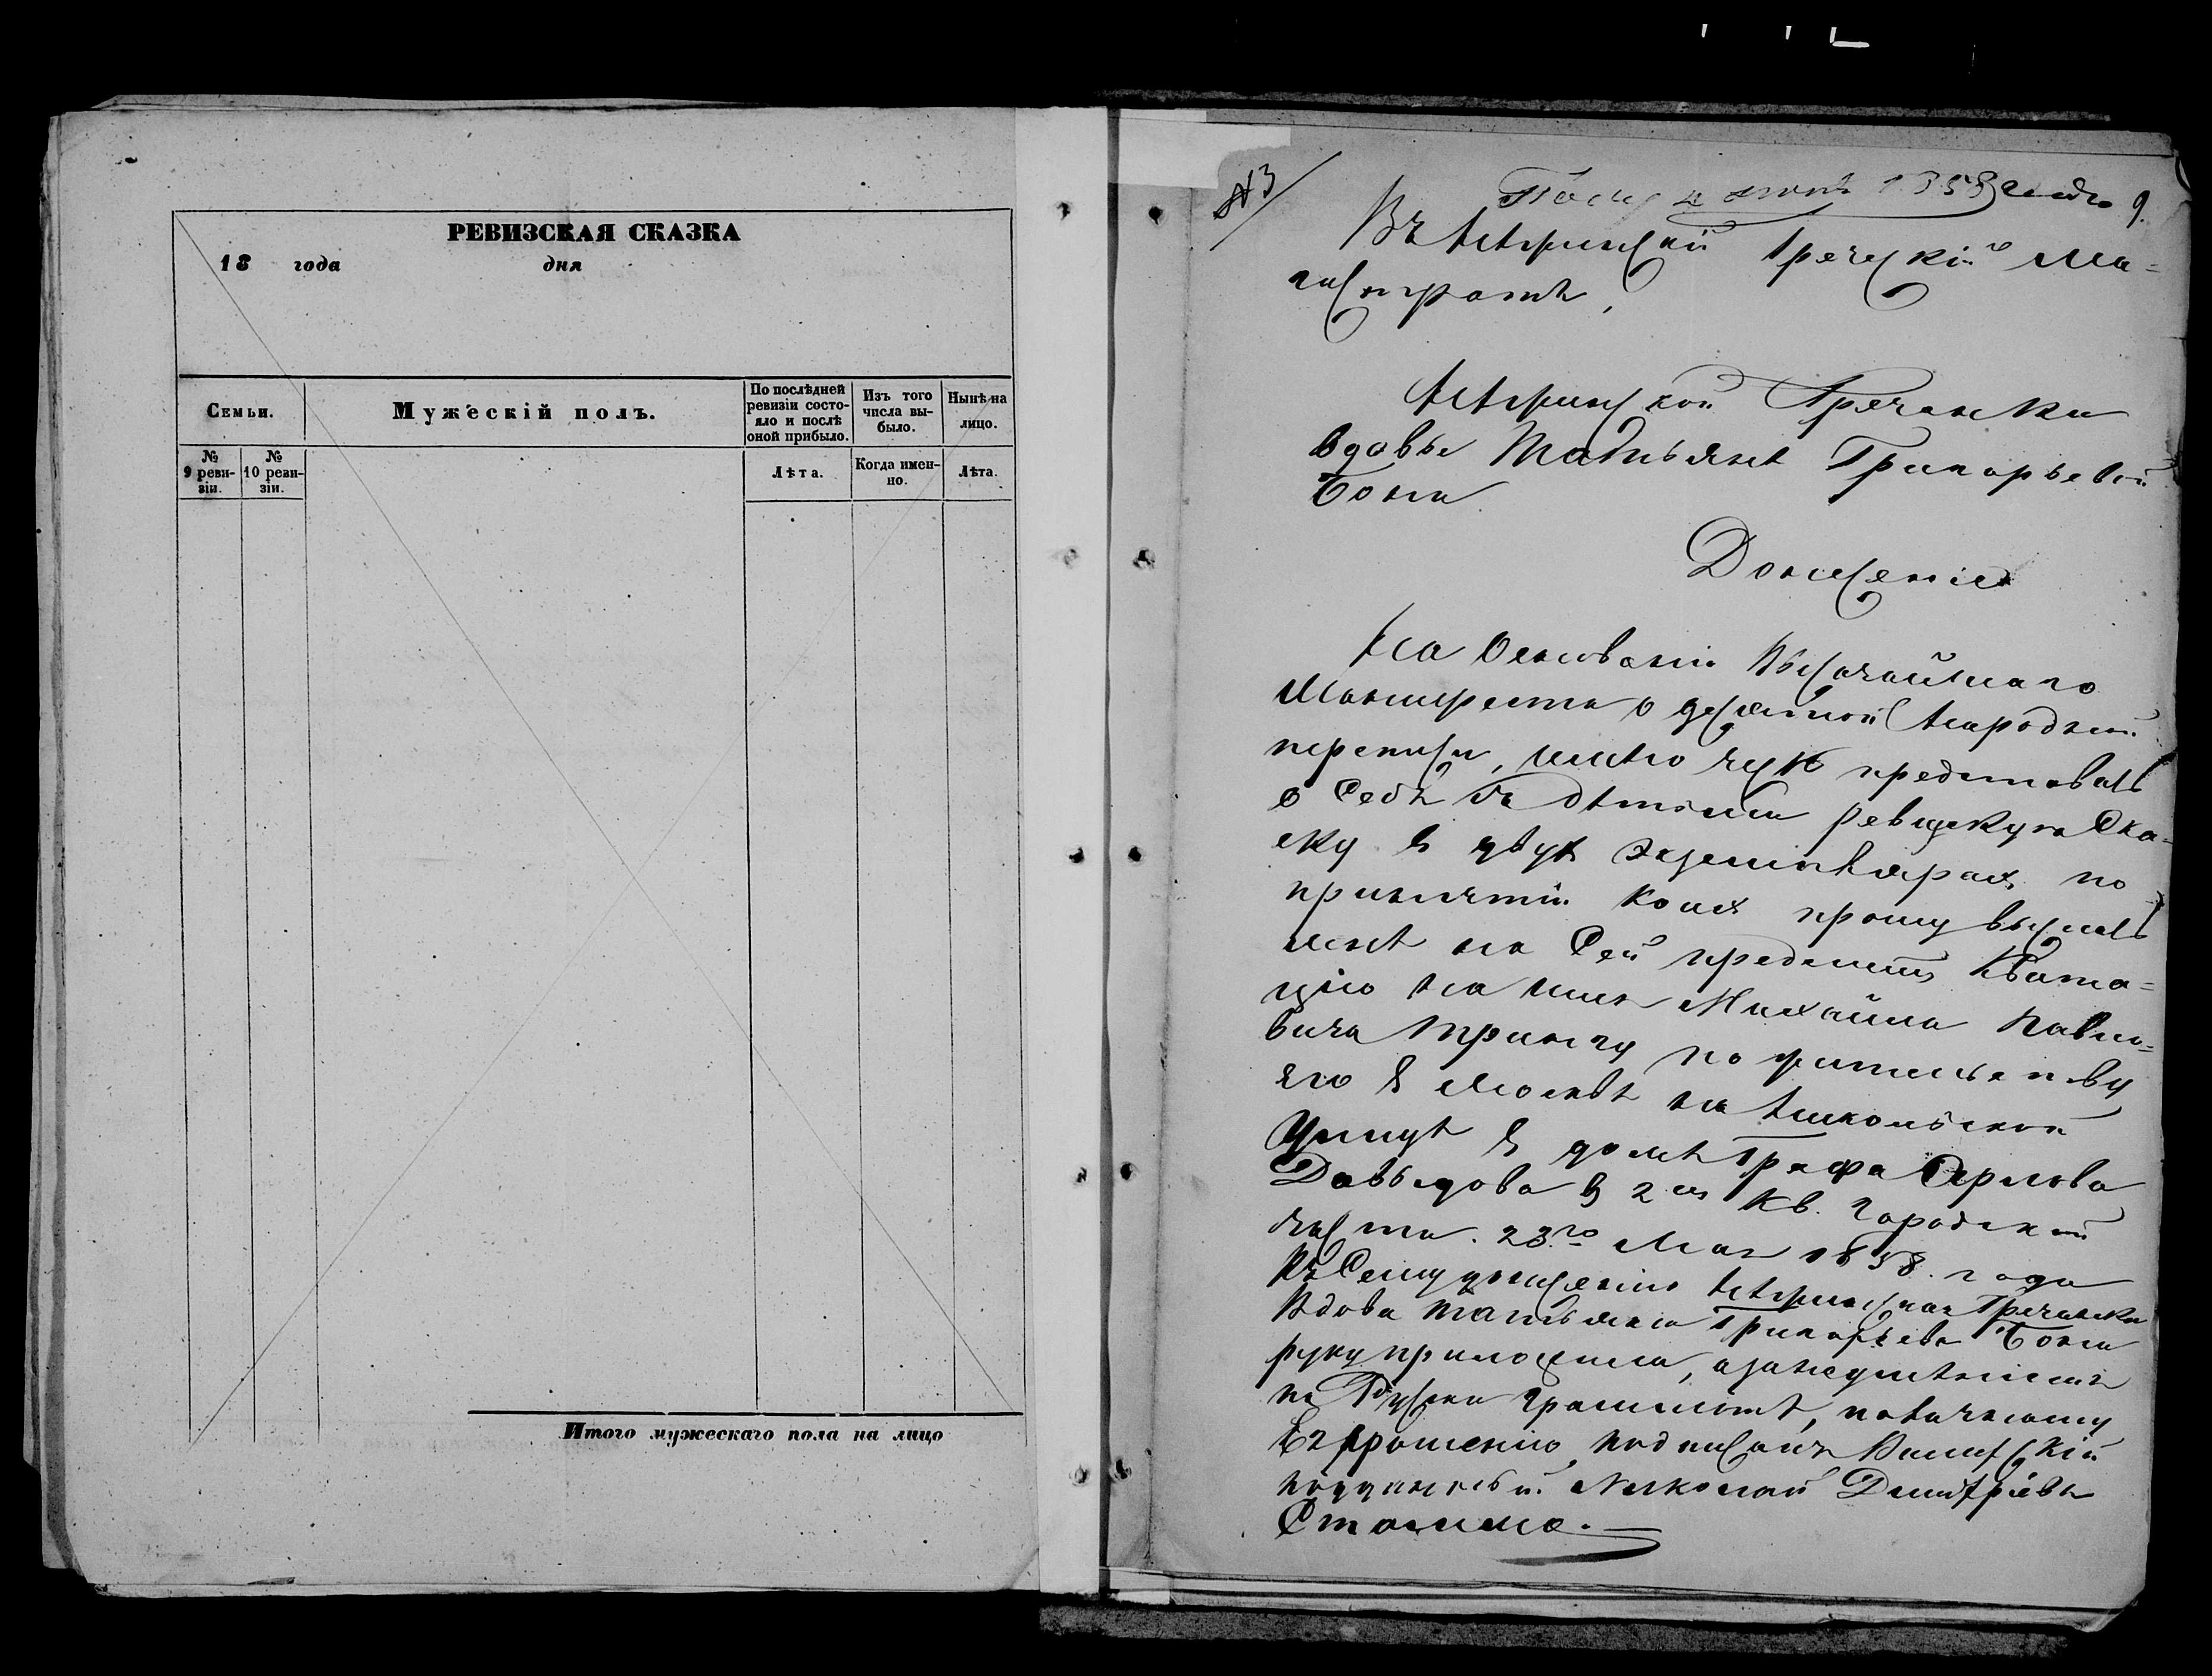 РЕВИЗСКАЯ СКАЗКА
18 года дня
Семьи.
Мужескій полъ.
По послѣдней ревизіи состояло и послѣ оной прибыло.
Изъ того числа выбыло.
Нынѣ на лицо.
№ 9 ревизіи.
№ 10 ревизіи.
Лѣта.
Когда именно.
Лѣта.
Итого мужескаго пола на лицо
№3
1858 года 9.
Въ Нѣжинскій Греческій Ма=
гистратъ,
Нѣжинской Гречанки
вдовы Татьяны Григорьевой
Бонги
Доношеніе
На Основаніи Высочайшаго
Манифеста о десятой Народной
переписи, имѣю честь представить
о Себѣ съ дѣтьми ревизскую Ска=
ску в двух Экземплярах, по
принятіи коих прошу выслать
мнѣ на Сей предметъ Квита=
цію на имя Михайла Павло=
вича по жительству
его в Москвѣ на Никольской
Улицѣ в домѣ Графа Орлова
Давыдова в 2 м Кв. Городской
части. 23го Мая 1858. года
Къ Сему доношенію Нѣжинская Гречанка
Вдова Татьяна Григорьева Бонги
руку приложила, а за неумѣніемъ
по Руски грамотѣ, по личному
Ея прошенію, подписалъ
подданный Николай Дмитріевъ